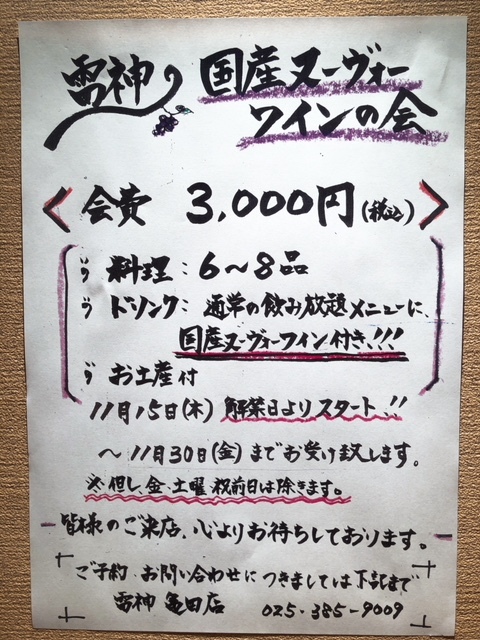 雷神 国産ヌーヴォー
ワインの会
会費 3,000円(税込)
料理:6〜8品
ドリンク:通常の飲み放題メニューに、
国産ヌーヴォーワイン付き!!!
お土産付
11月15日(木)解禁日よりスタート!!
〜11月30日(金)までお受け致します。
※但し、金・土曜、祝前日は除きます。
皆様のご来店、心よりお待ちしております。
ご予約 お問い合わせにつきましては下記まで
雷神 亀田店 025-385-9009